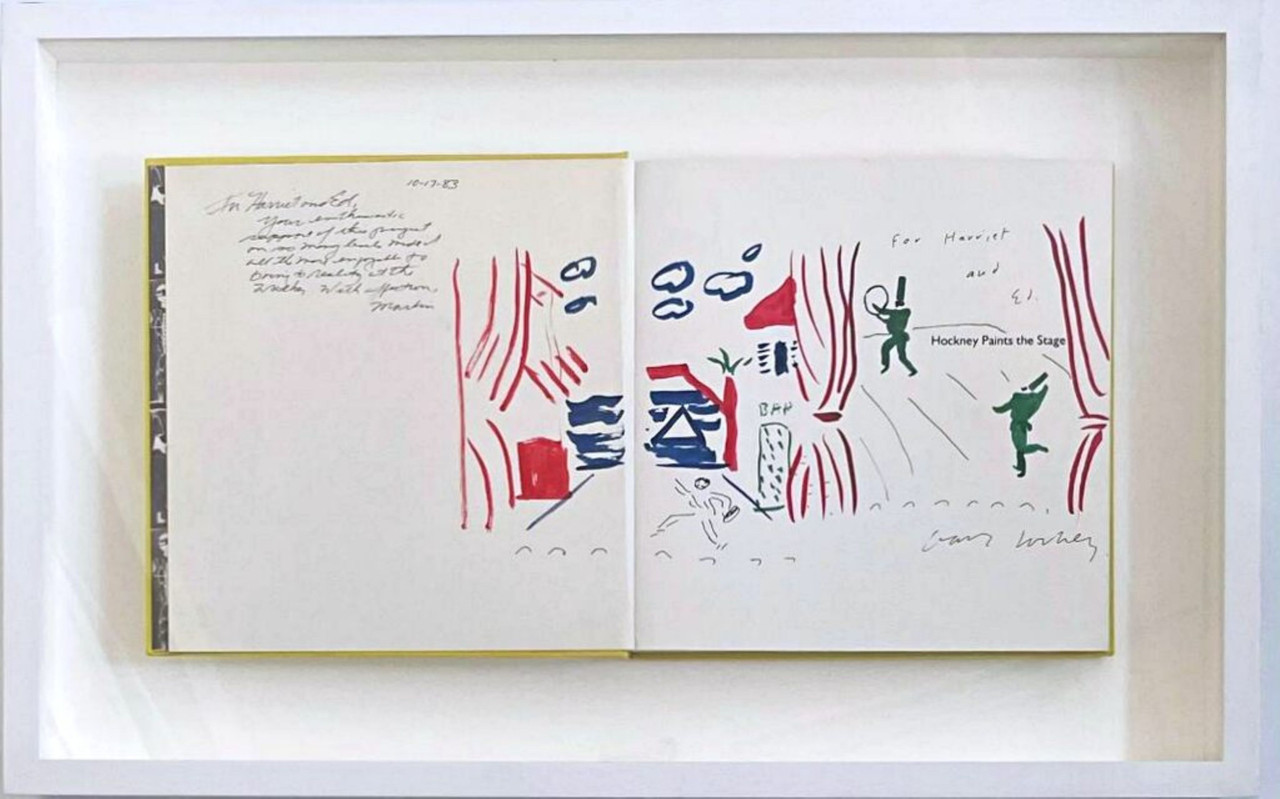 10-17-83
For Harriet and Ed,
Your enthusiastic
support of this project
on so many levels made it
all the more enjoyable to
bring to reality at the
Walker. With affection,
Martin
For Harriet
and
Ed.
Hockney Paints the Stage
BAR
David Hockney